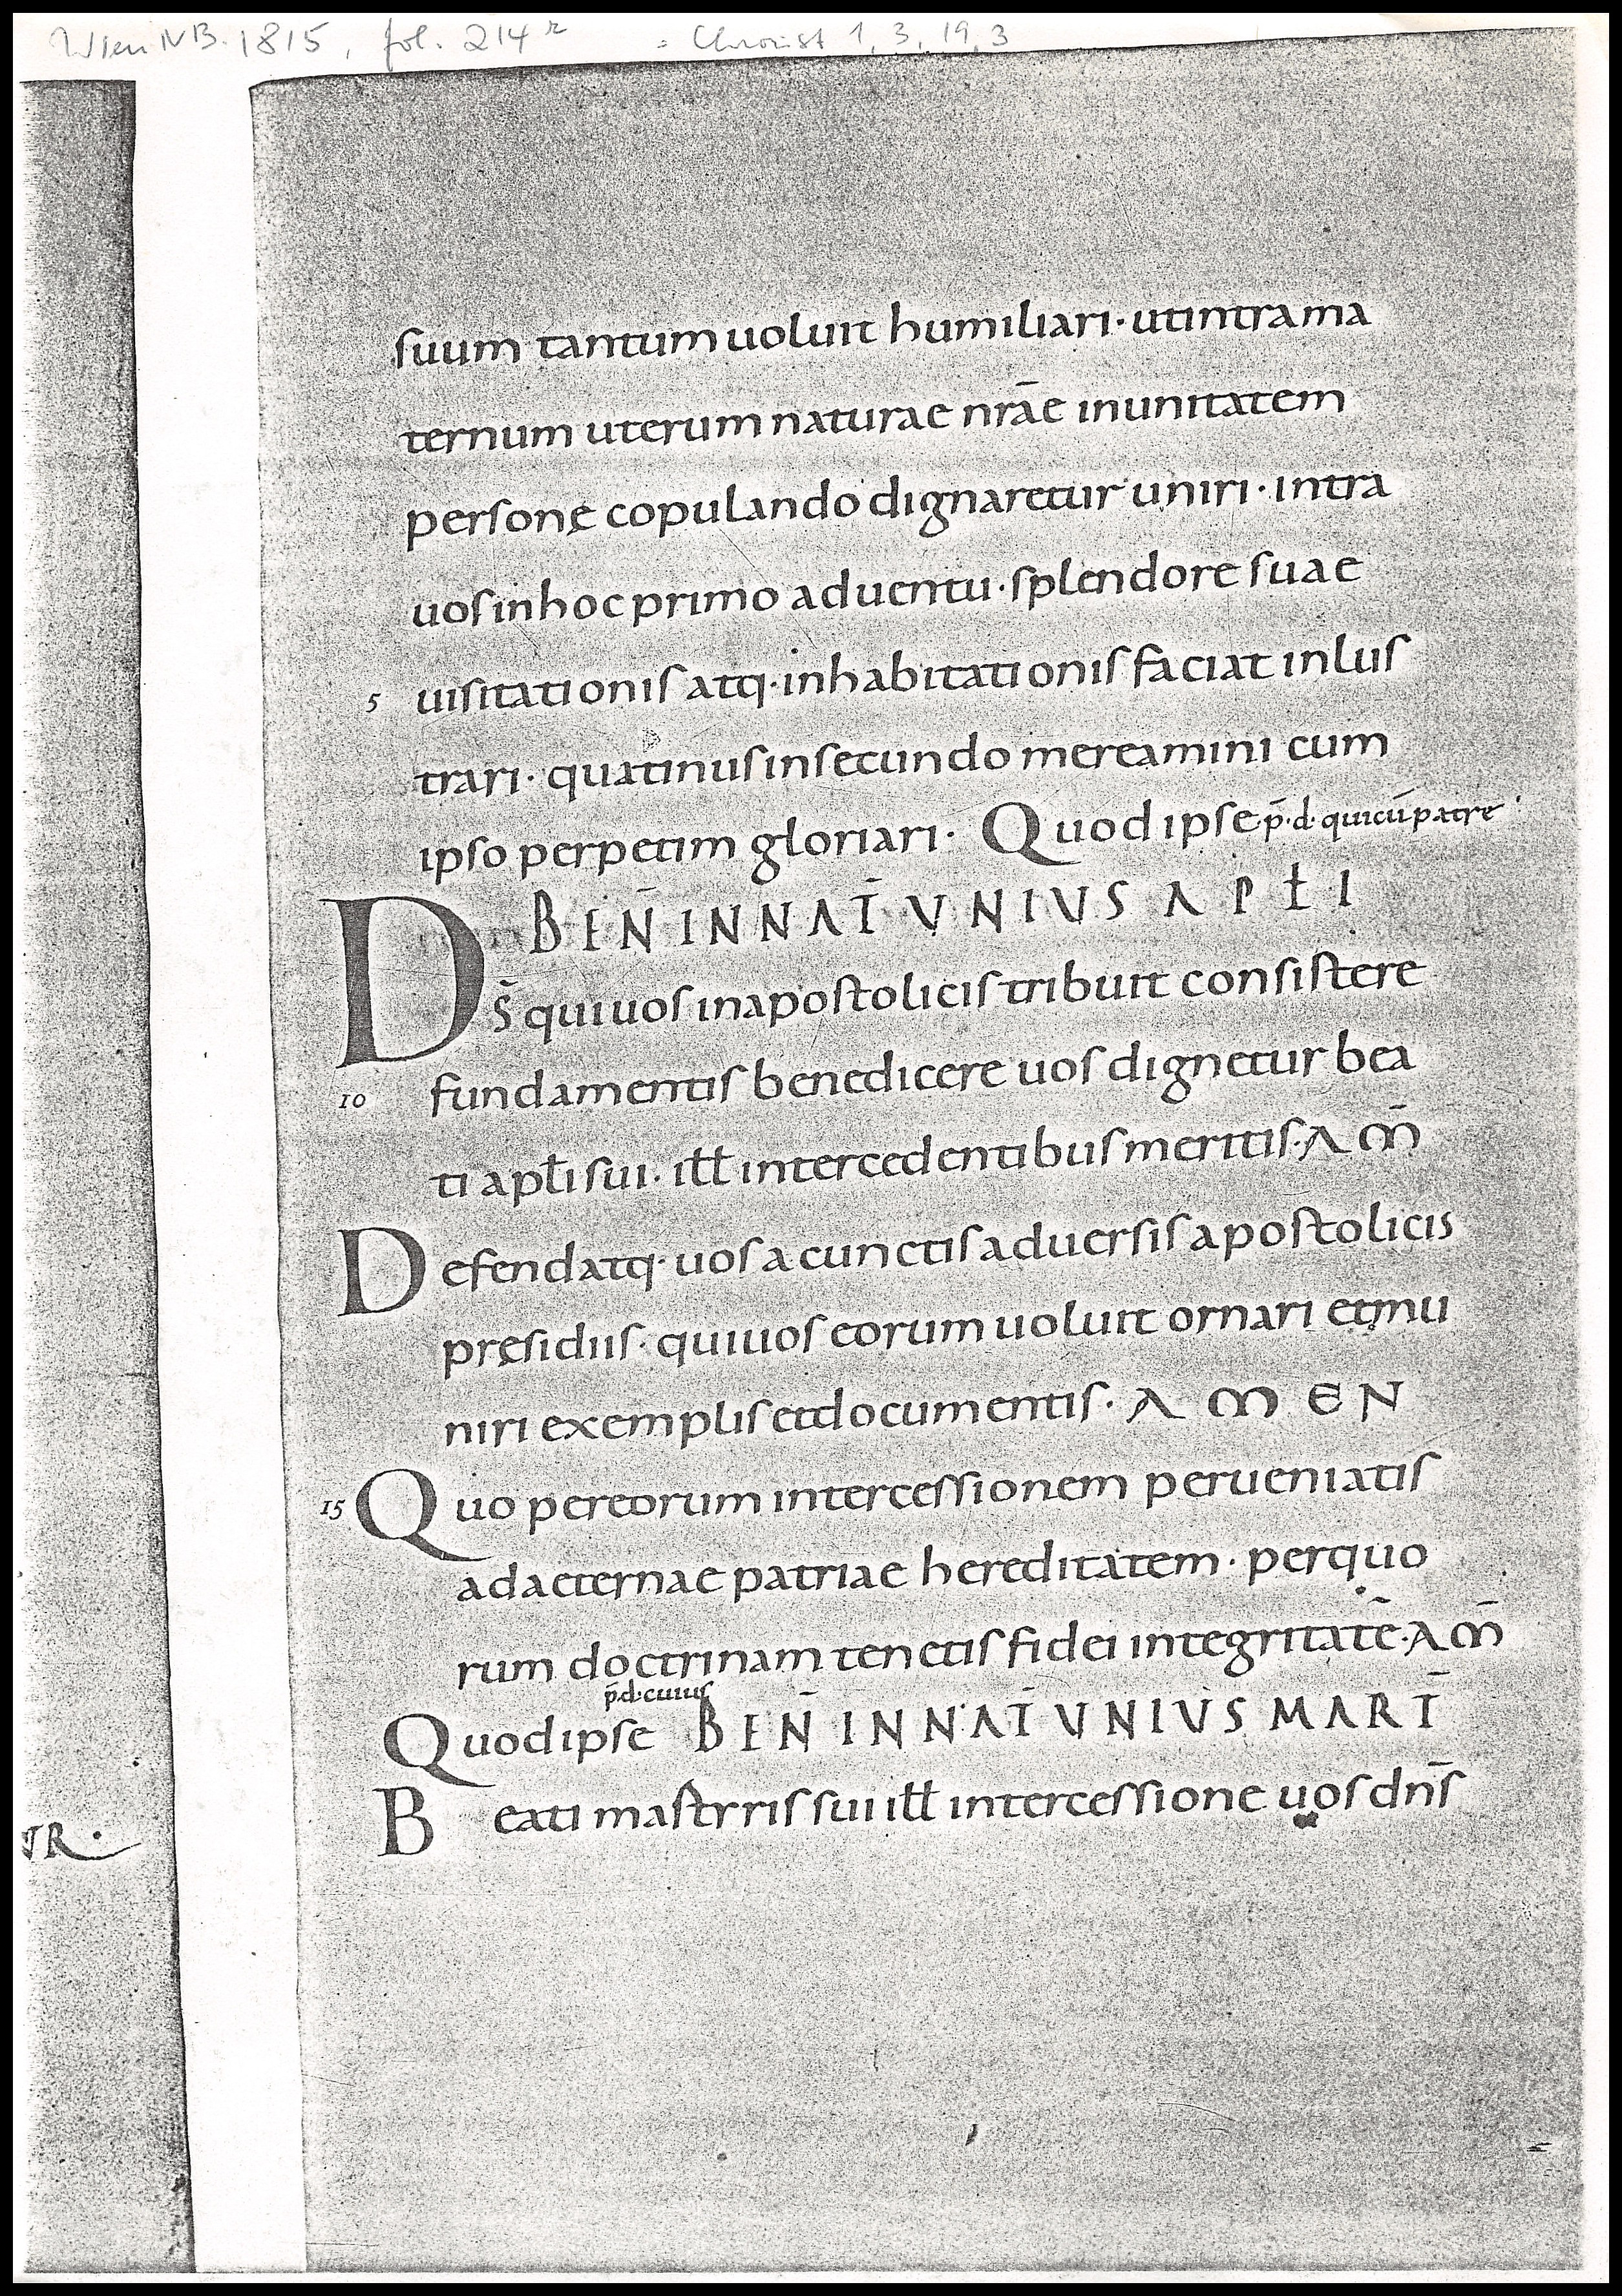 Wien NB. 1815, fol. 214r = Chroust 1, 3, 19, 3
suum tantum uoluit humiliari · ut intra ma
ternum uterum naturae nr̄ae in unitatem
personę copulando dignaretur uniri · intra
uos in hoc primo aduentu · splendore suae
5 uisitationis atq· inhabitationis faciat inlus
trari · quatinus in secundo mereamini cum
ipso perpetim gloriari · Quod ipse p̄·d· qui cū patre
BEN̄ IN NAT̄ UNIUS APŁI
DS̄ qui uos in apostolicis tribuit consistere
10 fundamentis benedicere uos dignetur bea
ti apłi sui · iłł intercedentibus meritis · AM̄
Defendatq· uos a cunctis aduersis apostolicis
pręsidiis · qui uos eorum uoluit ornari et mu
niri exemplis et documentis · AMEN
15 Quo per eorum intercessionem perueniatis
ad aeternae patriae hereditatem · per quo
rum doctrinam tenetis fidei integritatē · AM̄
p̄·d· cuius
Quod ipse BEN̄ IN NAT̄ UNIUS MART̄
Beati mastrris sui iłł intercessione uos dn̄s
TR ·